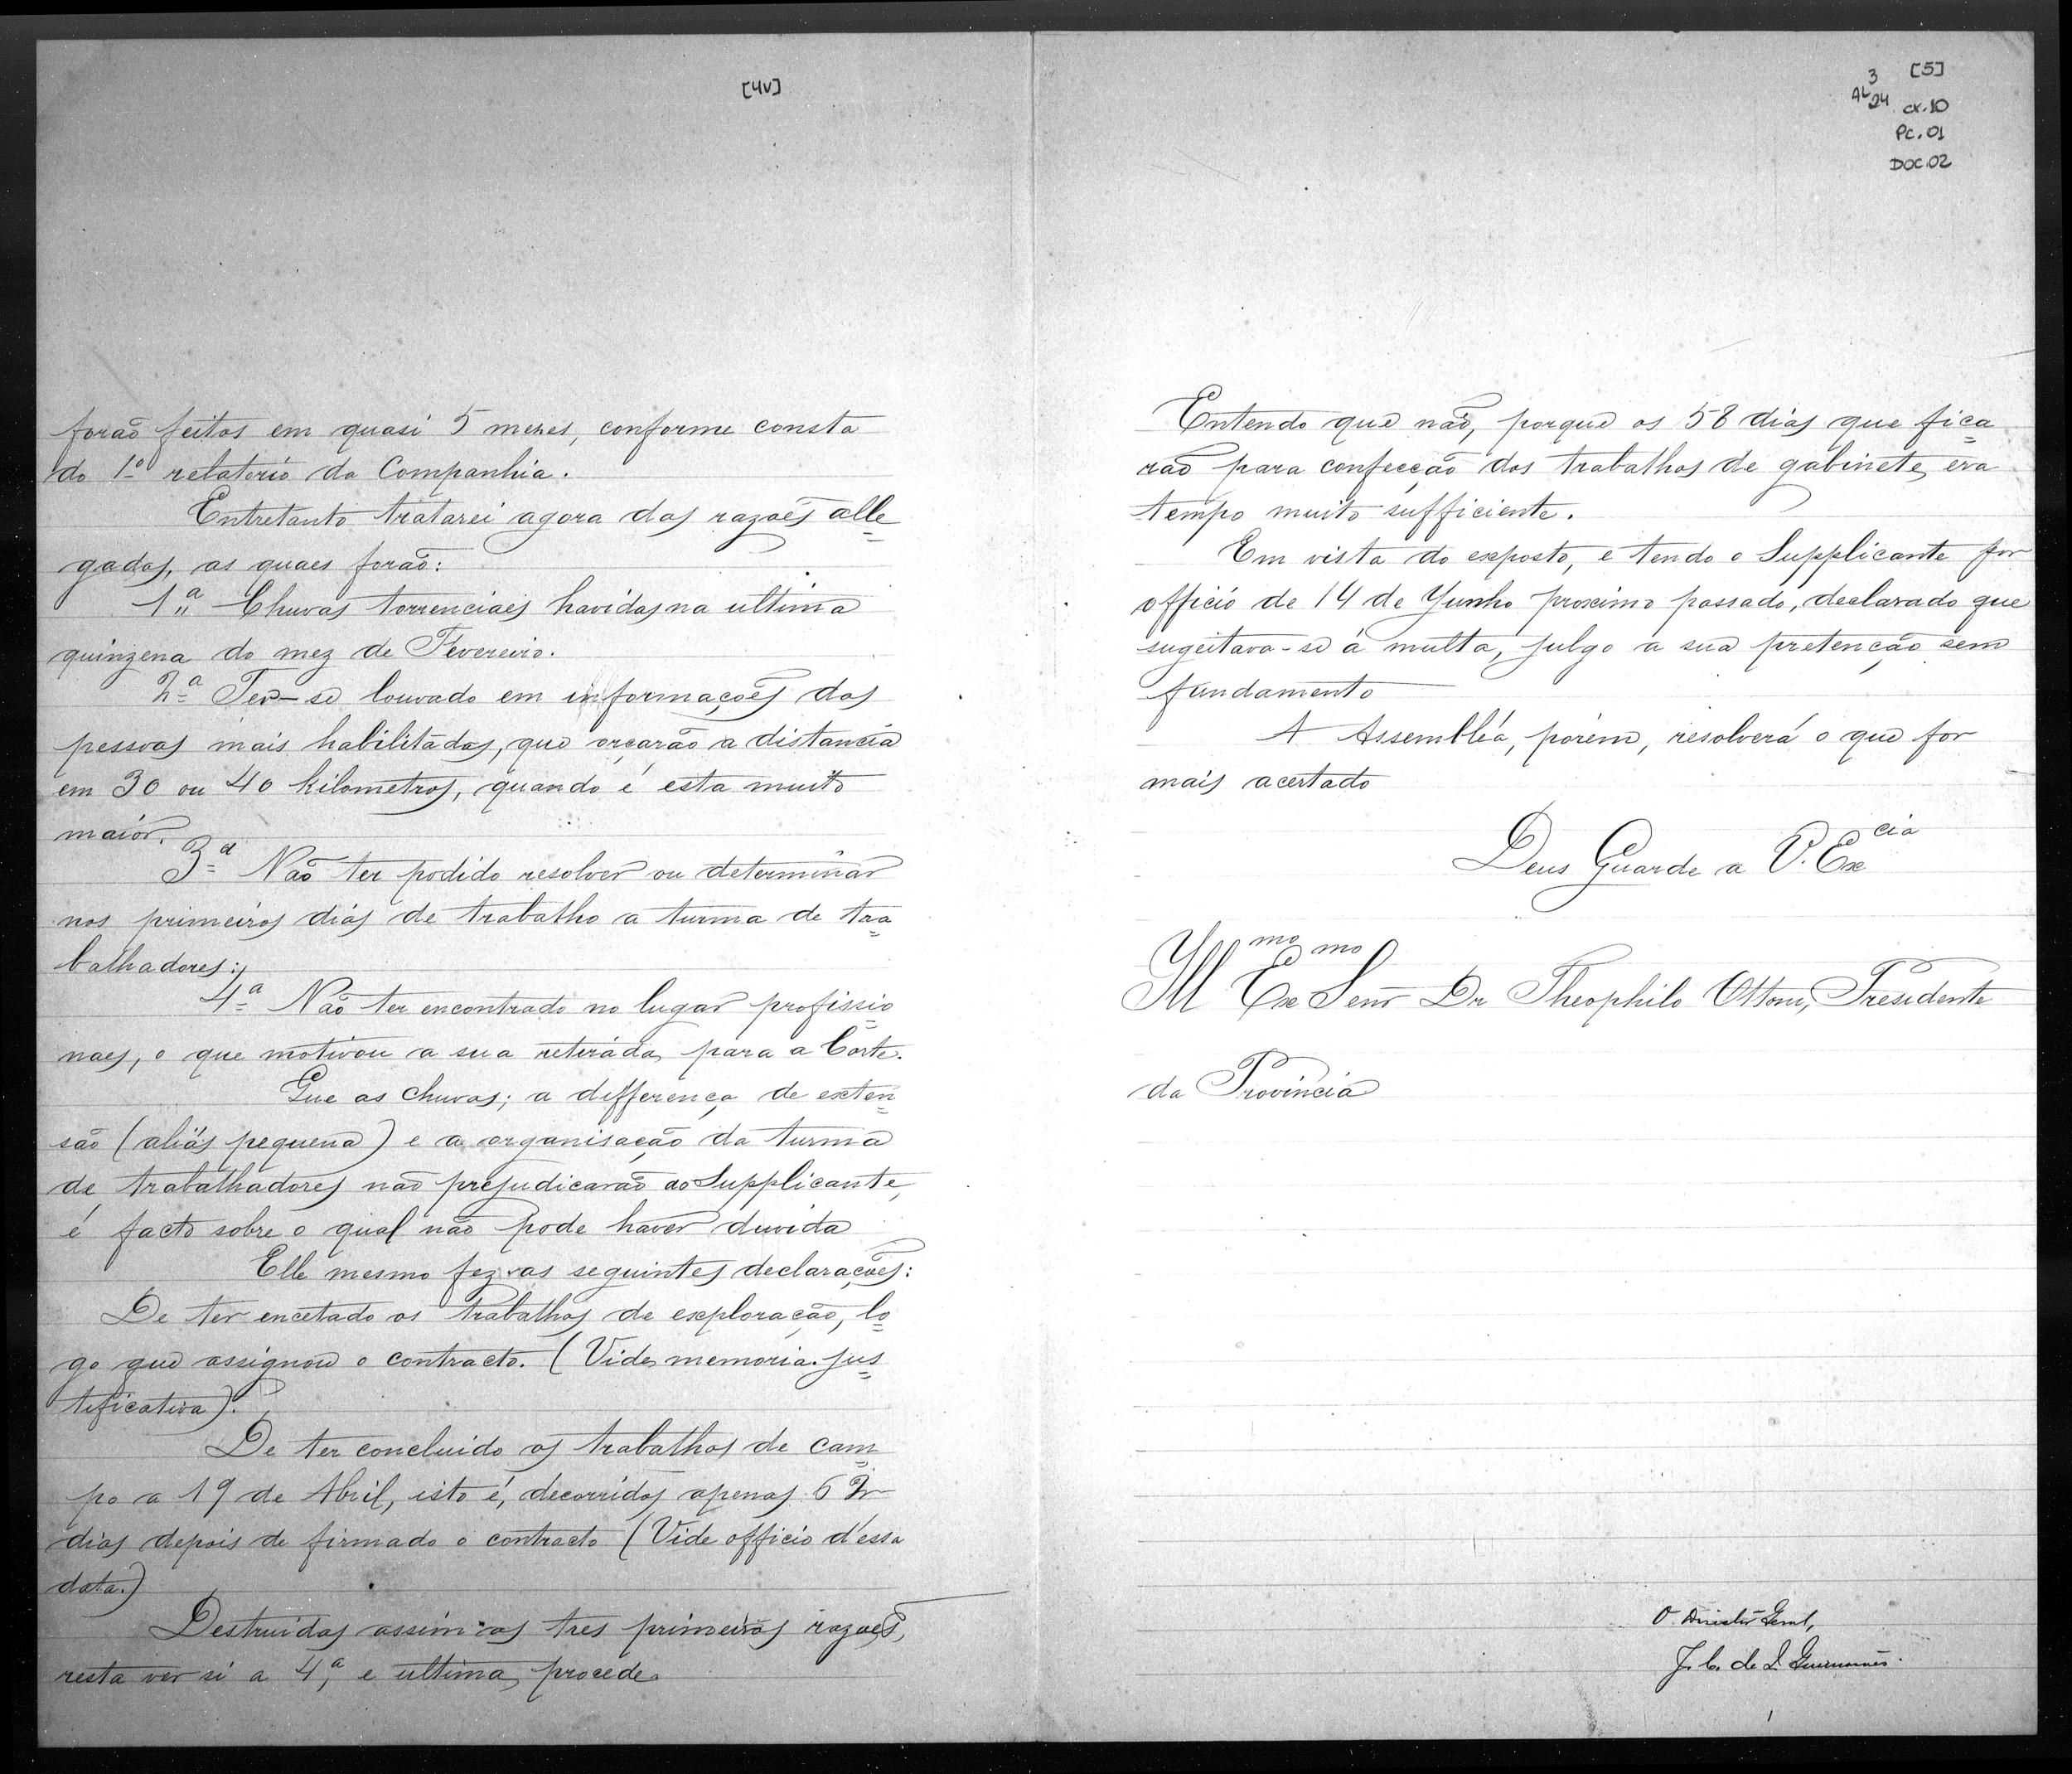 [4v]
forão feitos em quasi 5 mezes, conforme consta
do 1º relatorio da Companhia.
Entretanto tratarei agora das razoẽs alle=
gadas, as quaes forão:
1ª Chuvas torrenciaes havidas na ultima
quinzena do mez de Fevereiro.
2ª Ter-se louvado em informaçoẽs das
pessoas mais habilitadas, que orçarão a distancia
em 30 ou 40 kilometros, quando é esta muito
maior.
3ª Não ter podido resolver ou determinar
nos primeiros dias de trabalho a turma de tra=
balhadores;
4ª Não ter encontrado no lugar profissio=
naes, o que motivou a sua retirada para a Corte.
Que as chuvas; a differença de exten=
são (aliás pequena) e a organisação da turma
de trabalhadores não prejudicarão ao Supplicante,
é facto sobre o qual não pode haver duvida
Elle mesmo fez as seguintes declaraçoẽs:
De ter encetado os trabalhos de exploração, lo=
go que assignou o contracto. (Vide memoria jus=
tificativa).
De ter concluido os trabalhos de cam=
po a 19 de Abril, isto é, decorridos apenas 62
dias depois de firmado o contracto (Vide officio d'essa
data.)
Destruidas assim as tres primeiras razoẽs,
resta ver si a 4ª, e ultima, procede.
[5]
AL 3
24 cx.10
Pc.01
DOC.02
Entendo que não, porque os 58 dias que fica=
rão para confecção dos trabalhos de gabinete, era
tempo muito sufficiente.
Em vista do exposto, e tendo o Supplicante por
officio de 14 de Junho proximo passado, declarado que
sugeitava-se á multa, julgo a sua pretenção sem
fundamento
A Assembléa, porém, resolverá o que for
mais acertado
Deus Guarde a V. Excia
Illmo Exmo Senr Dr Theophilo Ottoni, Presidente
da Provincia
O Director Geral,
J. C. de S. Guimarães.